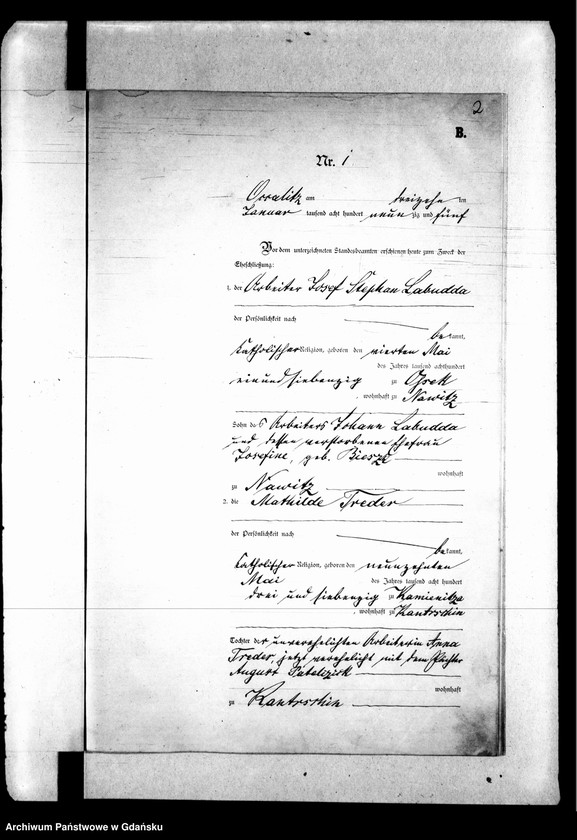 2
B.
Nr. 1
am dreizehnten
Januar tausend acht hundert neunzig und fünf
Vor dem unterzeichneten Standesbeamten erschienen heute zum Zweck der
Eheschließung:
1. der Arbeiter Josef Stephan Labudda
der Persönlichkeit nach
bekannt,
katholischer Religion, geboren den vierten Mai
des Jahres tausend achthundert
einundsiebenzig zu Ossek
, wohnhaft zu Nawitz
Sohn des Arbeiters Johann Labudda
und dessen verstorbenen Ehefrau
Josefine, geb.
wohnhaft
zu Nawitz
2. die Mathilde Treder
der Persönlichkeit nach
bekannt,
katholischer Religion, geboren den neunzehnten
Mai des Jahres tausend acht hundert
drei und siebenzig zu Kamienitza
, wohnhaft zu Kantrschin
Tochter der unverehelichten Arbeiterin Anna
Treder, jetzt verehelicht mit dem
August
wohnhaft
zu Kantrschin
Archiwum Państwowe w Gdańsku